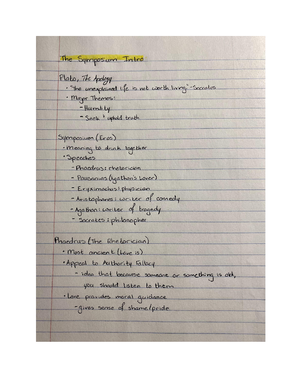 The Symposium Intro
Plato, The Apology
• "the unexamined life is not worth living" -Socrates
• Major Themes:
- Humility
- Seek & uphold truth
Symposium (Eros)
• Meaning to drink together
• Speeches
- Phaedrus: rhetorician
- Pausanias (Agathon's Lover)
- Eryximachus: physician
- Aristophanes: writer of comedy
- Agathon: writer of tragedy
- Socrates: philosopher
Phaedrus (The Rhetorician)
• Most ancient (Love is)
• Appeal to Authority Fallacy
- idea that because someone or something is old,
you should listen to them
• Love provides moral guidance
- gives sense of shame/pride